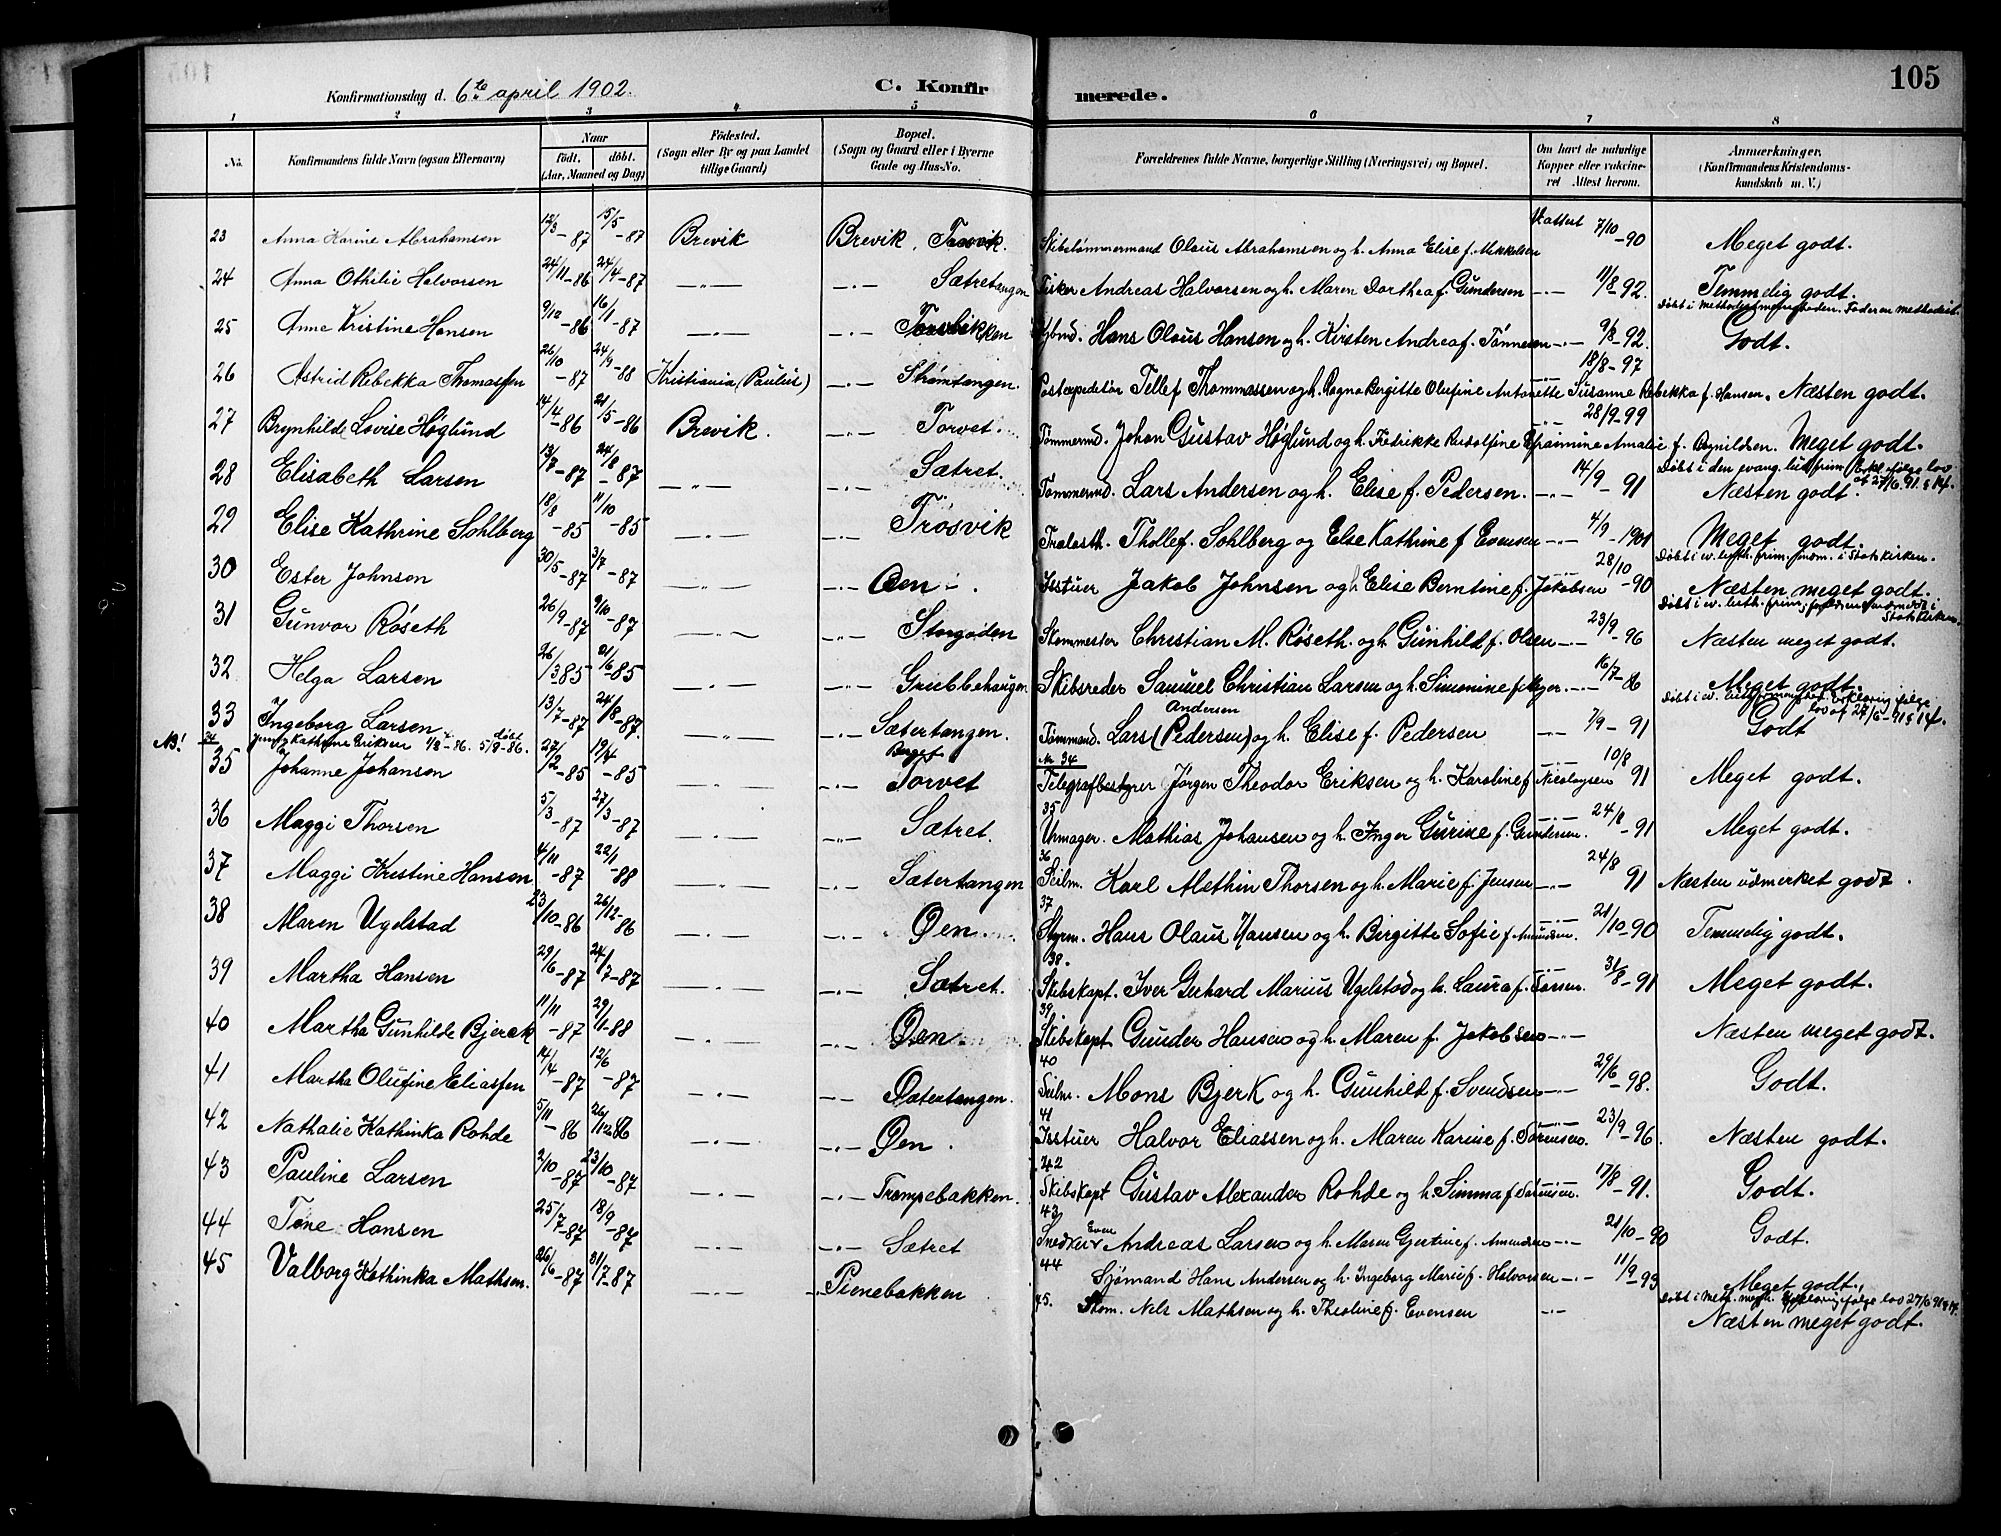 105
Konfirmationsdag d. 6te april 1902.
C. Konfir merede.
1 2 3 4 5 6 7 8
No. Konfirmandens fulde Navn (ogsaa Efternavn) Naar født. døbt. (Aar, Maaned og Dag) Fødested. (Sogn eller By og paa Landet tillige Gaard) Bopæl. (Sogn og Gaard eller i Byerne Gade og Hus-No. Forældrenes fulde Navne, borgerlige Stilling (Næringsvei) og Bopæl. Om havt de naturlige Kopper eller vakcineret Attest herom. Anmærkninger. (Konfirmandens Kristendomskundskab m. V.)
23 Anna Karine Abrahamsen 12/3-87 15/5-87 Brevik Brevik, Trosvik. Skibstømmermand Olaus Abrahamsen og h. Anna Elise f. Mikkelsen Attest 7/10-90 Meget godt.
24 Anna Othilie Halvorsen 24/11-86 24/4-87 —"— —"— Sætretangen Fisker Andreas Halvorsen og h. Maren Dorthea f. Gundersen —"— 11/8-92. Temmelig godt.
Døbt i Methodistmenigheden. Faderen methodist.
25 Anne Kristine Hansen 9/10-86 16/1-87 —"— —"— Hans Olaus Hansen og h. Kirsten Andrea f. Tønnesen —"— 9/8-92. Godt.
26 Astrid Rebekka Thomassen 26/10-87 24/9-88 Kristiania (Paulus) —"— Strømtangen. Postexpeditør Tellef Thommassen og h. Ragna Bergitte Olufine Antonette Susanne Rebekka f. Hansen. 18/8-97 Næsten godt.
27 Brynhilde Lovise Høglund 14/4-86 21/5-86 Brevik. —"— Torvet. Tømmermd. Johan Gustav Høglund og h. Fredrikke Rudolfine Efraimine Amalie f. Brynildsen. 28/9-99 Meget godt.
28 Elisabeth Larsen 13/7-87 24/8-87 —"— —"— Sætret. Tømmermd. Lars Andersen og h. Elise f. Pedersen. —"— 14/9-91 Døbt i den evang. luth. frim.
lov af 27/6.91 § 14. Næsten godt.
29 Elise Kathrine Sohlberg 18/8-85 11/10-85 —"— —"— Trosvik Trælasth. Thollef. Sohlberg og Else Kathrine f Evensen —"— 4/9-1901 Meget godt.
30 Ester Johnsen 30/5-87 3/7-87 —"— —"— Øen. Isstuer Jakob Johnsen og h. Elise Berntine f. Jakobsen 28/10-90 Døbt i ev. luth. frim. i Statskirken.
Næsten meget godt.
31 Gunvor Røseth 26/9-87 9/10-87 —"— —"— Storgaden Skommester Christian M. Røseth. og h. Gunhild f. Olsen —"— 23/9-96 Døbt i ev. luth. frim; i Statskirken.
Næsten meget godt.
32 Helga Larsen 26/3-85 21/6-85 —"— —"— Grubbehaugen Skibsreder Samuel Christian Larsen og h. Simonine f. —"— 16/7-86 Meget godt.
33 Ingeborg Larsen 13/7-87 24/8-87. —"— —"— Sætertangen. Tømmand. Lars (Pedersen) Andersen og h. Elise f. Pedersen —"— 7/9-91 Døbt i ev. luth. erklæring ifølge lov af 27/6-91 § 14.
Godt
NB! 34 Jenny Kathrine Eriksen 1/8-86. døbt 5/9-86. Berget № 34 Telegrafbestyrer Jørgen Theodor Eriksen og h. Karoline f. Nicolaysen 10/8 91 Meget godt.
35 Johanne Johansen 27/2-85 19/4-85 —"— —"— Torvet 35 Urmager. Mathias Johansen og h. Inger Gurine f. Gundersen. 24/8-91 Meget godt.
36 Maggi Thorsen 5/3-87 27/3-87 —"— —"— Sætret. 36 Seilm. Karl Methin Thorsen og h. Marie f. Jensen —"— 24/8 91 Næsten udmerket godt.
37 Maggi Kristine Hansen 4/11-87 22/1-88 —"— —"— Sætertangen 37 Styrm. Hans Olaus Hansen og h. Birgitte Sofie f. Amundsen. 21/10-90 Temmelig godt.
38 Maren Ugelstad 23/10-86 26/12-86 —"— —"— Øen. 38. Skibskapt. Iver Gerhard Marius Ugelstad og h. Laura f. Larsen. 31/8-91 Meget godt.
39 Martha Hansen 29/6-87 24/7-87 —"— —"— Sætret. 39 Skibskapt Gunder Hansen og h. Maren f. Jakobsen —"— Næsten meget godt.
40 Martha Gunhilde Bjerck 11/11-87 29/1-88 —"— —"— Øen 40 Seilm. Mons Bjerk og h. Gunhild f. Svendsen —"— 29/6-98. Godt.
41 Martha Olufine Eliassen 14/4-87 12/6-87 —"— —"— Sætertangen. 41 Isstuer Halvor Eliassen og h. Maren Karine f. Sørensen. 23/9-96. Næsten godt.
42 Nathalie Kathinka Rohde 5/11-86 26/12 86 —"— —"— Øen. 42 Skibskapt Gustav Alexander Rohde og h. Simma f. Sørensen. 17/8-91. Godt.
43 Pauline Larsen 2/10-87 23/10-87 —"— —"— Trompebakken. 43 Snedker Even Andreas Larsen og h. Maren Gjertine f. Amundsen —"— 21/10-90 Godt.
44 Tine Hansen 25/7-87 18/9-87 —"— —"— Sætret 44 Sjømand Hans Andersen og h. Ingeborg Marie f. Halvorsen —"— 11/9-93 Meget godt.
45 Valborg Kathinka Mathsen. 26/6-87 31/7-87 —"— —"— Pienebakken 45. Skom. Nels Mathsen og h. Theoline f. Evensen —"— Døbt i Meth. megh. Erklæring ifølge lov 27/6 91 § 14.
Næsten meget godt.